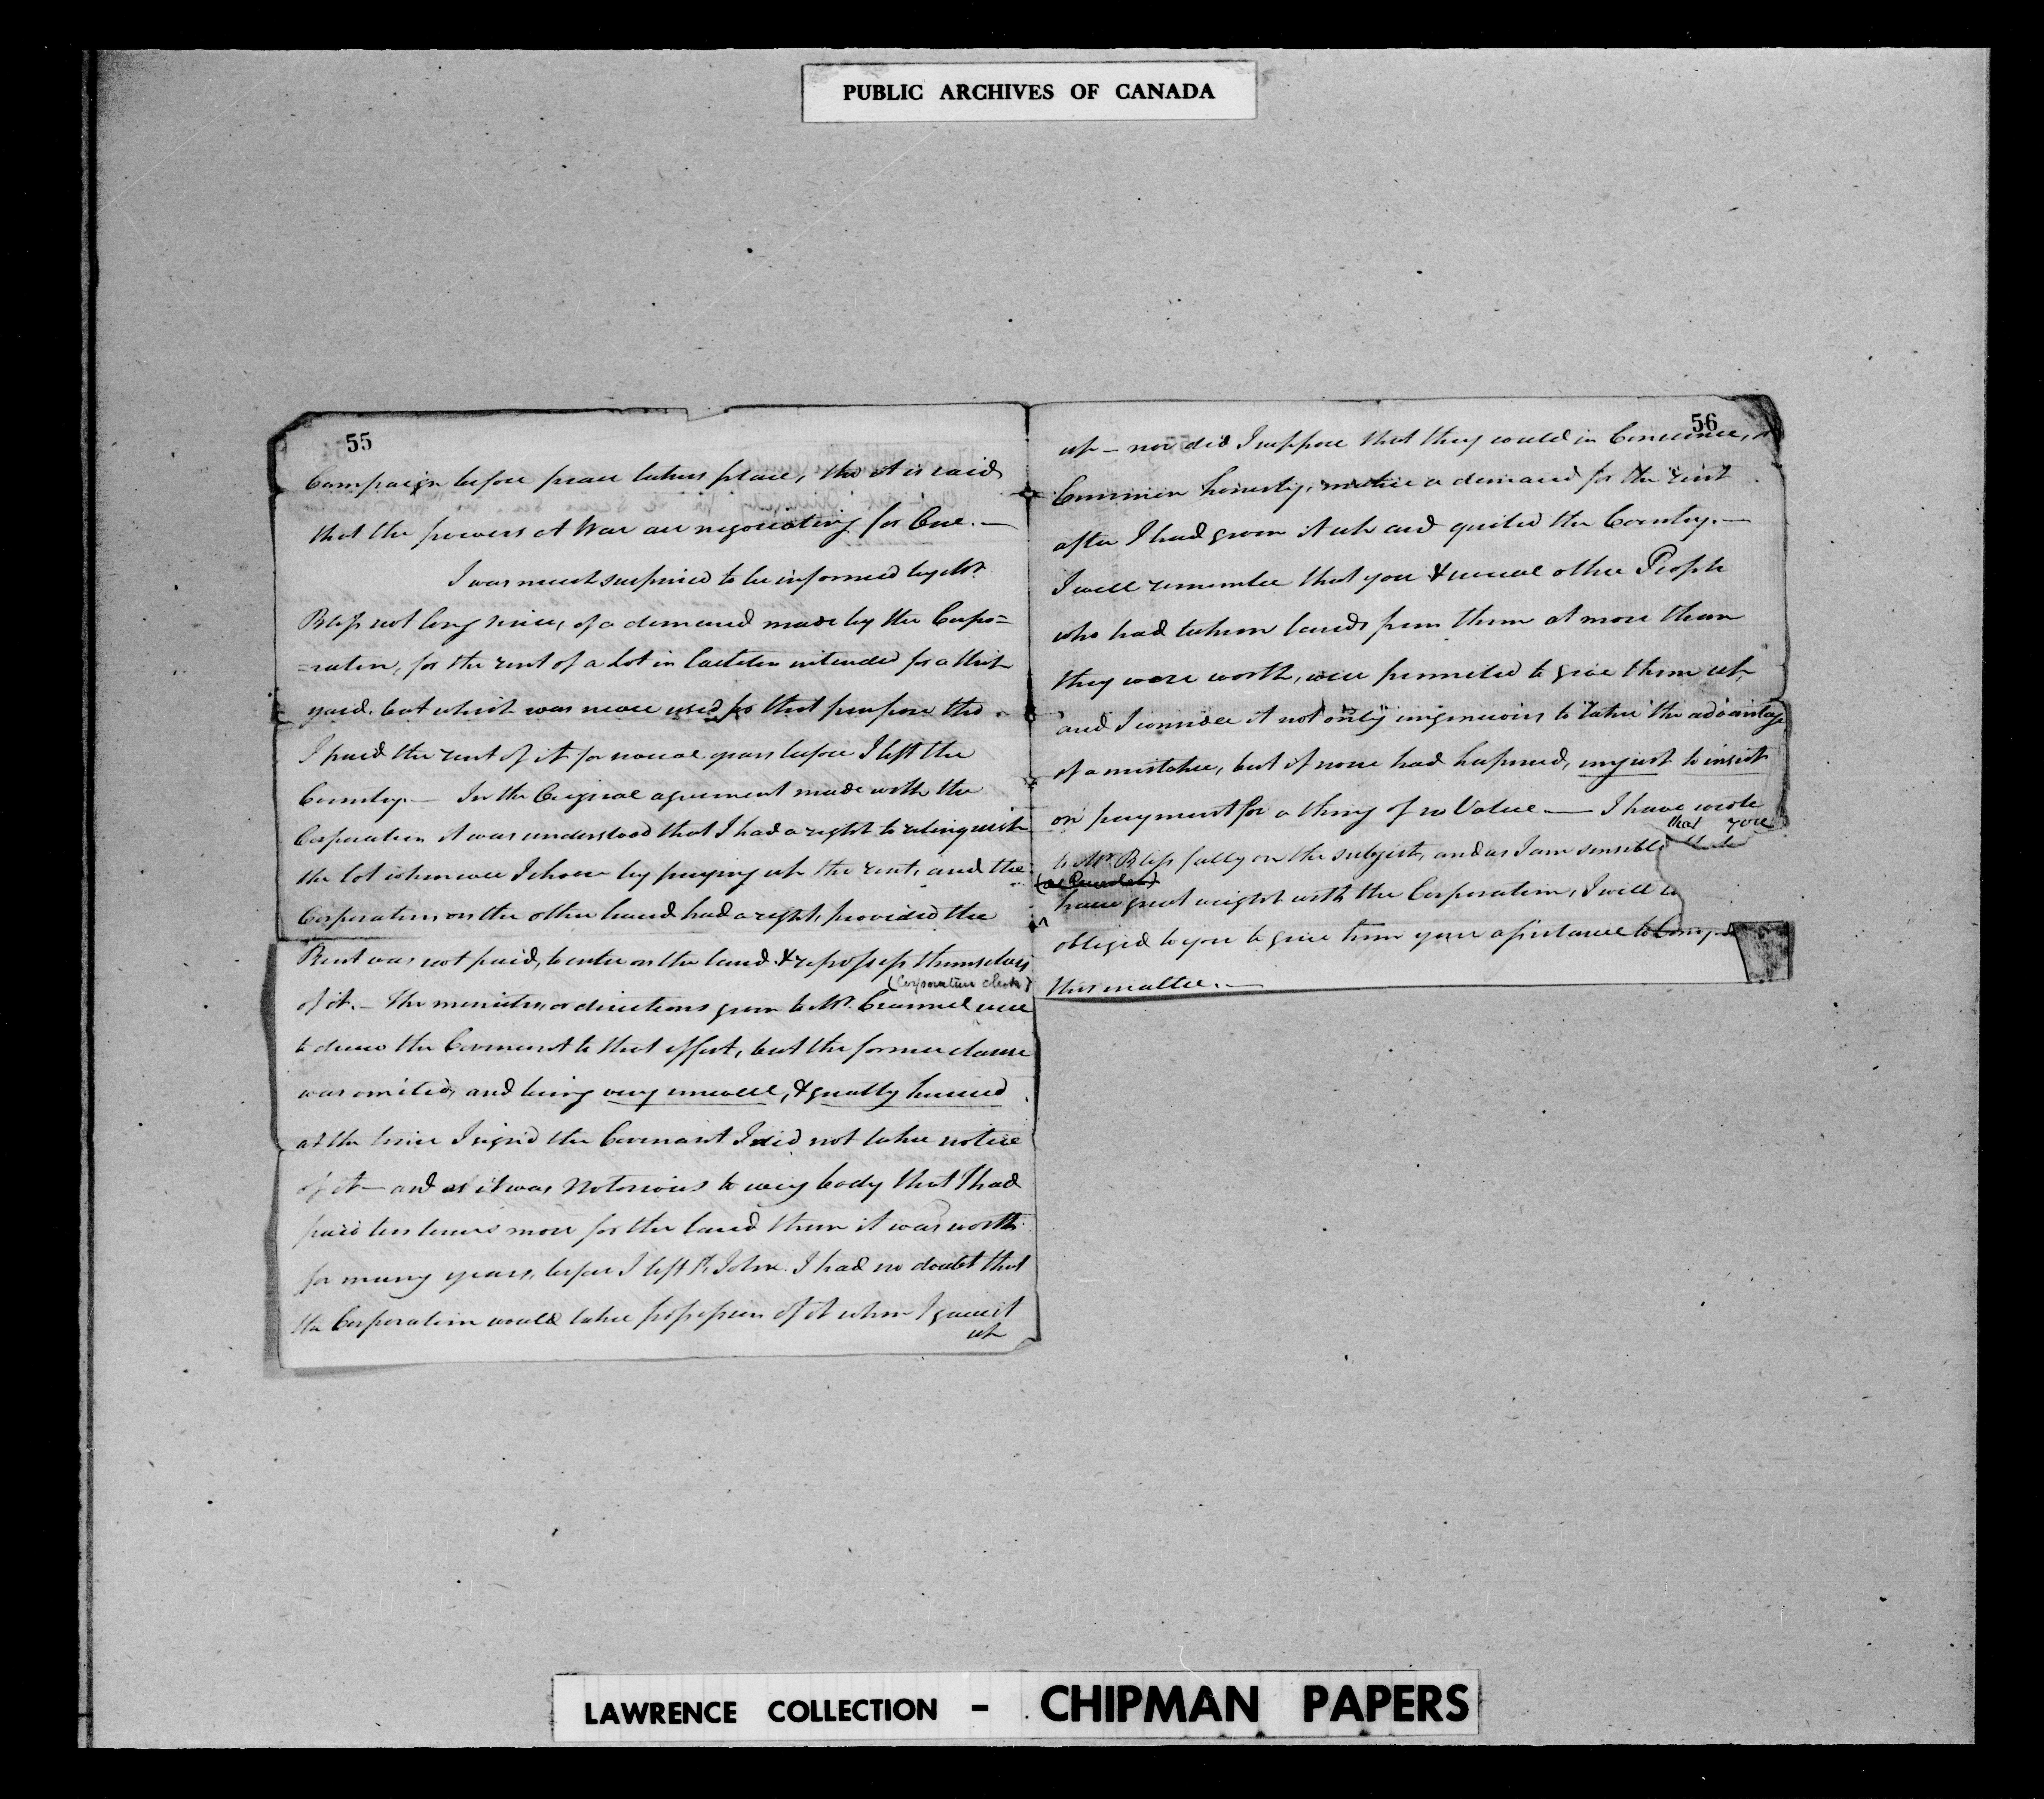 PUBLIC ARCHIVES OF CANADA
55
Campaign before peace takes place, tho it is said
that the powers at War are negociating for One.—
I was much surprised to be informed by Mr
Bliss not long since, of a demand made by the Corpo=
=ration, for the rent of a Lot in Carleton intended for a Ship
yard. but which was never used for that purpose tho
I paid the rent of it for several years before I left the
Country.— In the Original agreement made with the
Corporation it was understood that I had a right to relinquish
the lot whenever I chose by paying up the rent, and the
Corporation on the other hand had a right, provided the
Rent was not paid, to enter on the land & repossess themselves
(Corporation clerk)
of it.— The minutes, or directions given to Mr. were
to draw the Covenant to that effect, but the former clause
was omited, and being very unwell, & greatly hurried
at the time I signd the Covenant I did not take notice
of it— and as it was Notorious to every body that I had
paid ten times more for the land than it was worth
for many years, before I left St. John. I had no doubt that
the Corporation would take possession of it when I gave it
up
56
up — nor did I suppose that they would in Concience, or
Common honesty, make a demand for the rent
after I had given it up and quited the Country.—
I well remember that you & several other People
who had taken lands from them at more than
they were worth, were permited to give them up
and I consider it not only ungenerous to take the advantage
of a mistake, but if none had hapened, unjust to insist
on payment for a thing of no Value.— I have wrote
that you
to Mr. Bliss fully on the subject, and as I am sensible
have great weight with the Corporation, I will
obliged to you to give him your assistance
in
this matter.—
LAWRENCE COLLECTION - CHIPMAN PAPERS